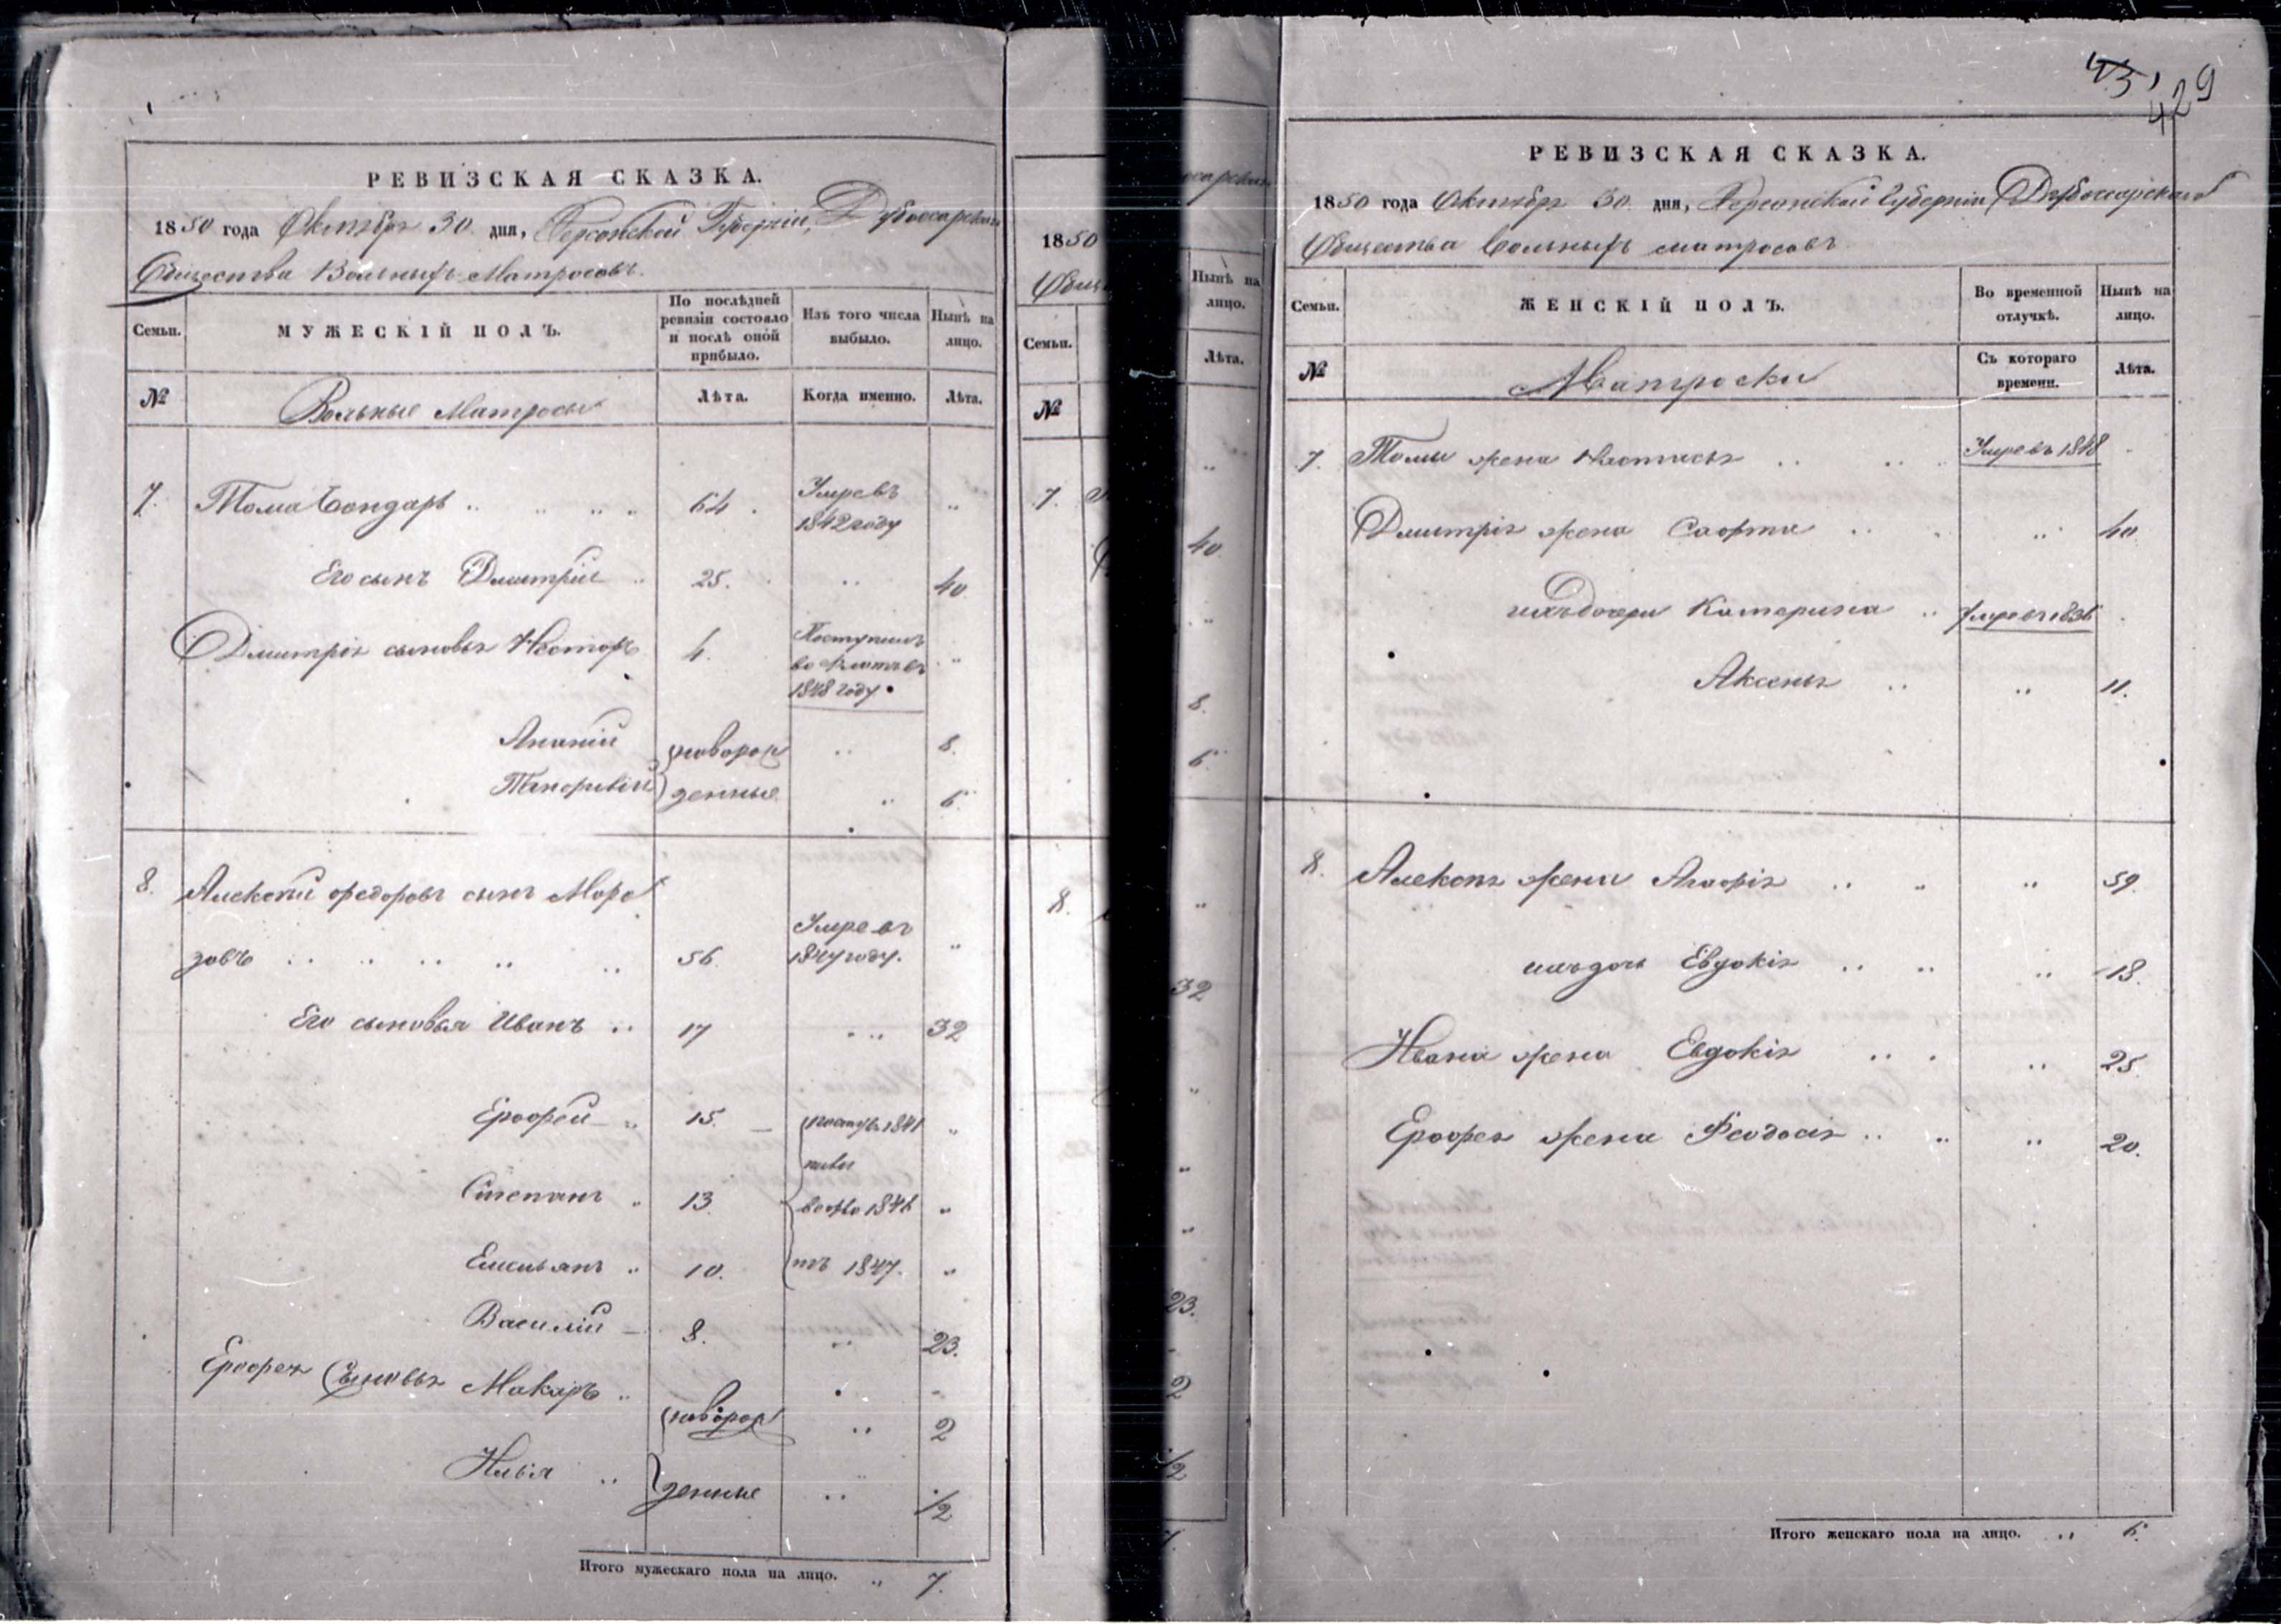 РЕВИЗСКАЯ СКАЗКА.
1850 года Октября 30 дня, Херсонской Губерніи, Дубоссарскаго
Общества Вольныхъ Матросовъ.
Семьи.
МУЖЕСКІЙ ПОЛЪ.
По послѣдней ревизіи состояло и послѣ оной прибыло.
Изъ того числа выбыло.
Нынѣ на лицо.
№
Вольные Матросы
Лѣта.
Когда именно.
Лѣта.
7. Тома Бондарь 64. Умре въ 1842 году
Его сынъ Дмитрій 25. 40
Дмитрія сыновья Несторъ 4. Поступилъ во флотъ въ 1848 году
Ананій новорож 8.
денные 6.
8. Алексѣй Федоровъ сынъ Моро
зовъ 56. Умре въ 1847 году.
Его сыновья Иванъ 17 32
Ерофей 15. поступ 1841
Степанъ 13. 1846
Емельянъ 10. 1847.
Василій 8. 23.
Ерофея Сыновья Макаръ новорож 2
Илья денные 1/2
Итого мужескаго пола на лицо. 7.
1850
Общ
Семьи.
№
7.
8.
Нынѣ на лицо.
Лѣта.
40
8.
6.
32
23.
2
1/2
7.
43
429
РЕВИЗСКАЯ СКАЗКА.
1850 года Октября 30 дня, Херсонской Губерніи Дубоссарскаго
Общества Вольныхъ матросовъ
Семьи.
ЖЕНСКІЙ ПОЛЪ.
Во временной отлучкѣ.
Нынѣ на лицо.
№
Матроски
Съ котораго времени.
Лѣта.
7. Томы жена Настасья Умре въ 1848
Дмитрія жена Софія 40
ихъ дочери Катерина Умре въ 1836
Аксенья 11.
8. Алексѣя жена Агафія 59.
ихъ дочь Евдокія 18.
Ивана жена Евдокія 25.
Ерофея жена Феодосія 20.
Итого женскаго пола на лицо. 6.